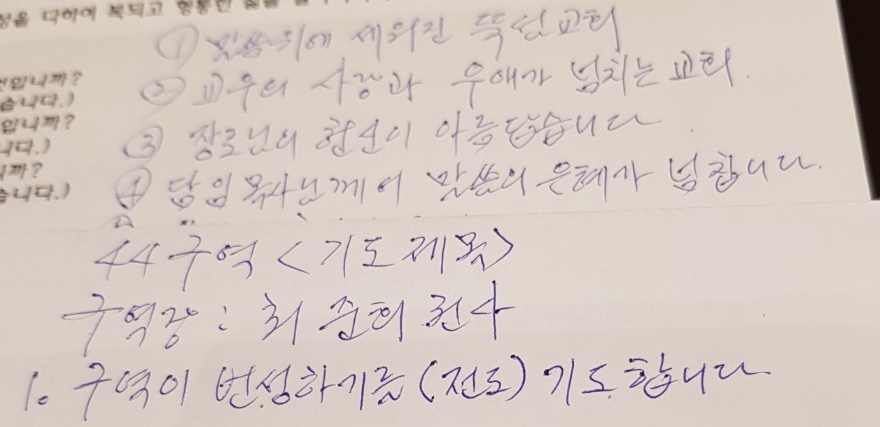 정을 다하여 복되고 형통한
① 말씀위에 세워진 뚝섬교회
② 교우의 사랑과 우애가 넘치는 교회.
③ 장로님의 헌신이 아름답습니다
④ 담임목사님께서 말씀의 은혜가 넘칩니다.
입니까?
습니다.)
입니까?
니다.)
니까?
습니다.)
44구역 <기도제목>
구역장 : 최준희 권사
1. 구역이 번성하기를 (전도) 기도합니다